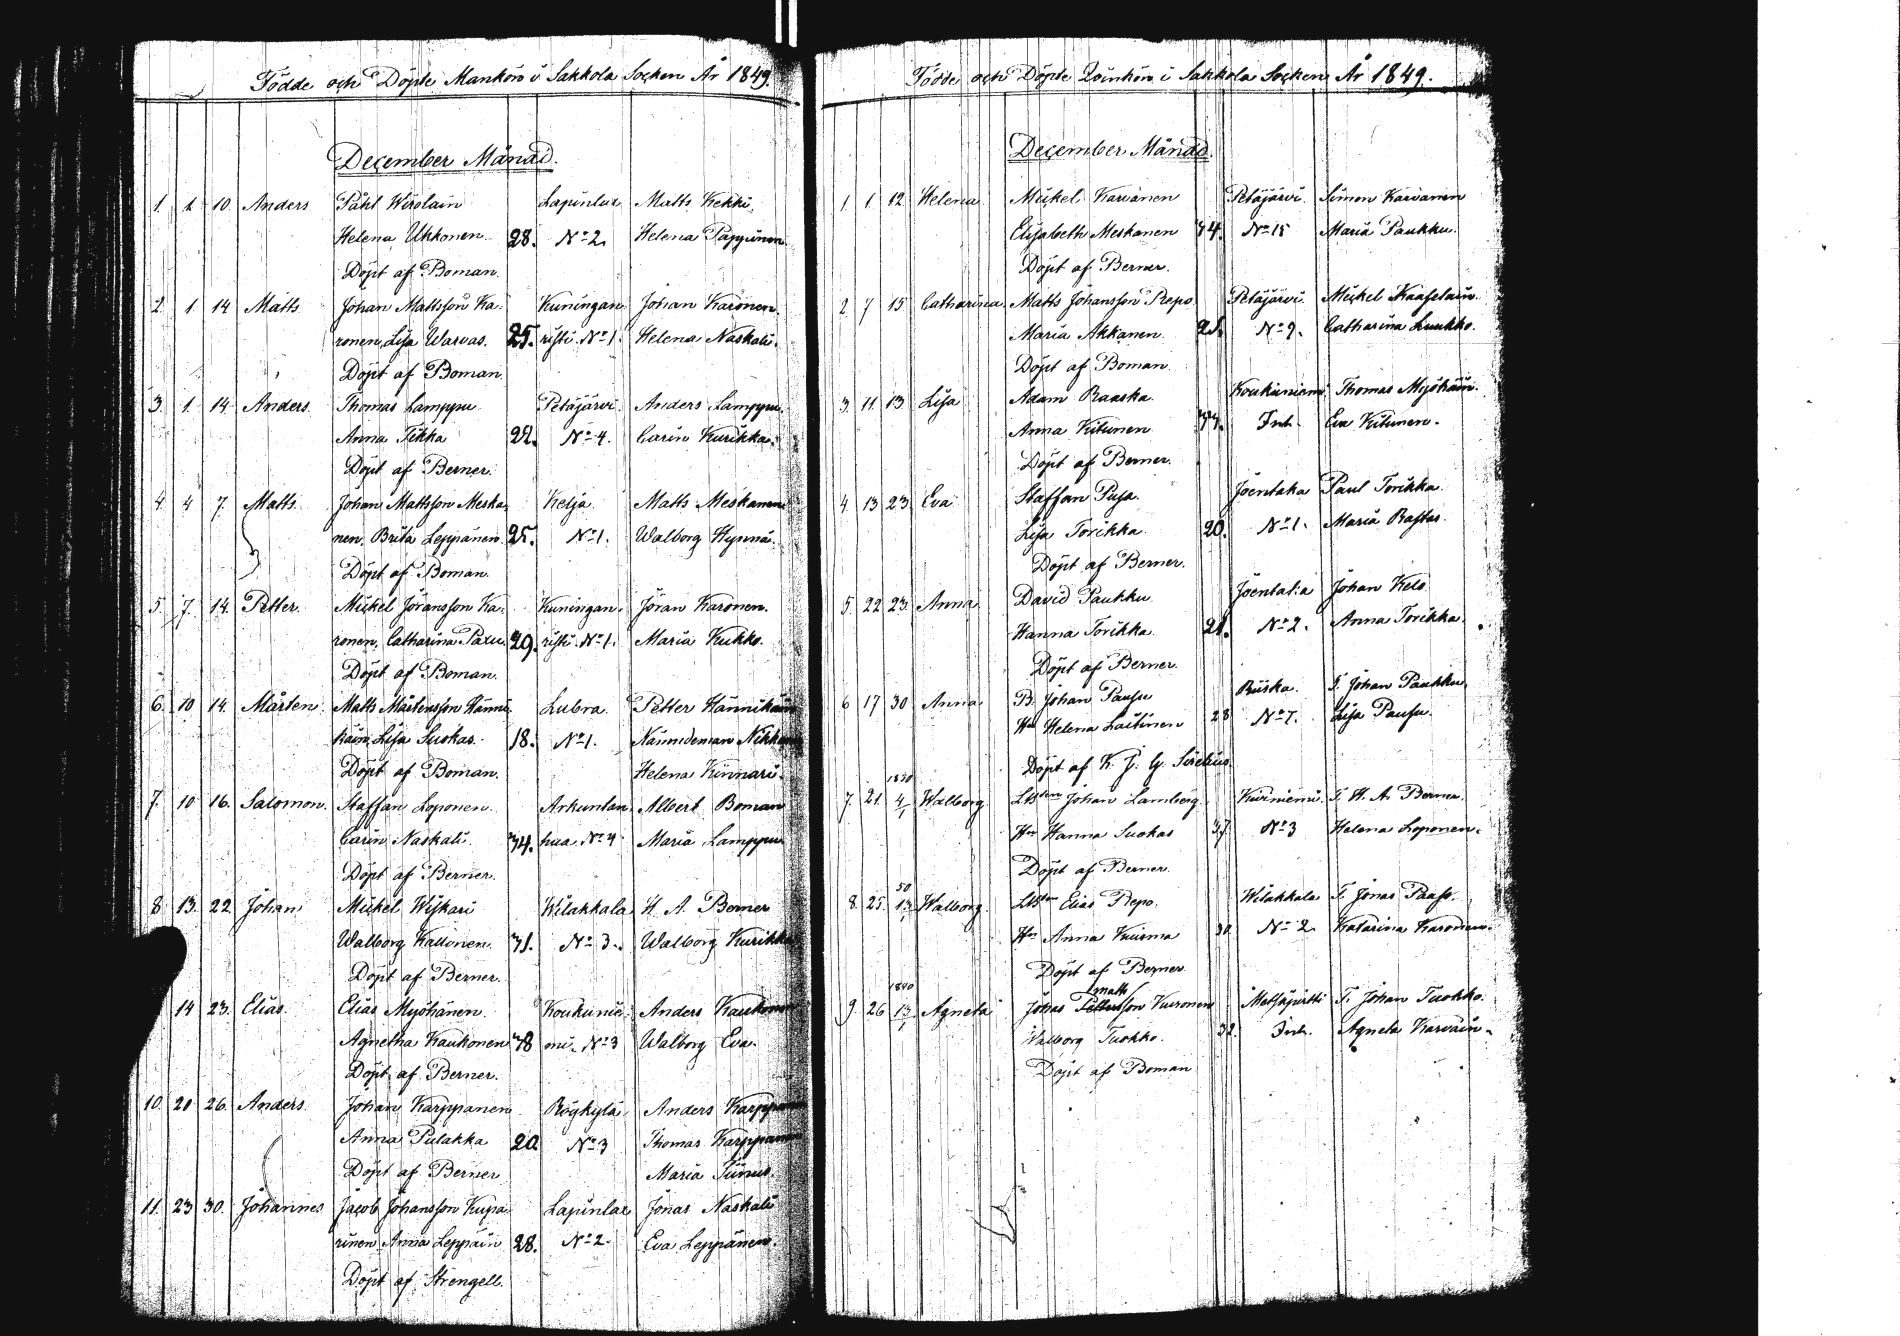 Födde och Döpte Mankön i Sakkola Socken År 1849.
December Månad.
1. 1. 10. Anders Påhl Wirolain Lapinlax Matts Kekki.
Helena Ukkonen. 28. No 2. Helena Pappinen
Döpt af Boman.
2. 1. 14. Matts Johan Mattsson Ka- Kuningan Johan Karonen.
ronen, Lisa Warvas. 25. risti No 1. Helena Naskali.
Döpt af Boman.
3. 1. 14. Anders. Thomas Lamppu. Petäjärvi. Anders Lamppu.
Anna Tikka 22. No 4. Carin Kurikka.
Döpt af Berner.
4. 4 7. Matts. Johan Mattsson Meska- Kelja Matts Meskanen
nen, Brita Leppänen. 25. No 1. Walborg Hynnä.
Döpt af Boman.
5. 7. 14. Petter. Mickel Göransson Ka- Kuningan- Göran Karonen.
ronen, Catharina Paxu. 29. risti. No 1. Maria Kukko.
Döpt af Boman.
6. 10 14. Mårten. Matts Mårtensson Hänni- Lubra. Petter Hännikäin
käin, Lisa Suokas. 18. No 1. Nämndeman
Döpt af Boman. Helena Kinnari.
7. 10 16. Salomon. Staffan Loponen. Arkuntan Albert Boman
Carin Naskali 34. hua No 4. Maria Lamppu
Döpt af Berner.
8. 13. 22. Johan Mickel Wiskari Wilakkala H. A. Berner
Walborg Kallonen. 31. No 3. Walborg Kurikka
Döpt af Berner.
14 23. Elias. Elias Myöhänen. Koukunie- Anders Kaukonen
Agnetha Kaukonen 38 mi. No 3 Walborg Eva.
Döpt af Berner.
10. 20 26. Anders. Johan Karppanen Röykylä. Anders Karppanen
Anna Pulakka 20 No 3 Thomas Karppanen
Döpt af Berner Maria Tiinus.
11. 23 30. Johannes Jacob Johansson Kupa- Lapinlax Jonas Naskali
rinen, Anna Leppäin 28. No 2. Eva Leppänen.
Döpt af Strengell.
Födde och Döpte Qvinkön i Sakkola Socken År 1849.
December Månad.
1. 1. 12. Helena Mickel Karvanen Petäjärvi. Simon Karvanen
Elisabeth Meskanen 34. No 15 Maria Paukku.
Döpt af Berner.
2. 7 15 Catharina Matts Johansson Repo Petäjärvi. Mickel Kaasalain.
Maria Akkanen. No 9. Catharina Luukko.
Döpt af Boman.
3. 11. 13 Lisa Adam Raaska. Koukuniemi Thomas Myöhäin.
Anna Kitunen Inh. Eva Kitunen.
Döpt af Berner.
4 13 23. Eva Staffan Pusa. Joentaka Paul Torikka.
Lisa Torikka. 20. No 1. Maria Rastas.
Döpt af Berner.
5. 22 23. Anna. David Paukku. Joentaka Johan Kelo
Hanna Torikka. 21. No 2. Anna Torikka.
Döpt af Berner.
6 17 30 Anna. B. Johan Pausu Riiska. F. Johan Paukku.
Hu Helena Laitinen 28 No 7. Lisa Pausu.
Döpt af K. J. G. Sirelius.
1850
7. 21. 4/1 Walborg. Johan Lamberg. Kurniemi. F. H. A. Berner.
Hu Hanna Suokas 37. No 3 Helena Loponen.
Döpt af Berner.
50
8. 25. 13/1 Walborg. Elias Repo. Wilakkala F. Jonas Paaso.
Hu Anna Kuisma 30. No 2. Katarina Karonen.
Döpt af Berner.
Matts
9. 26 13/1 Agneta Johas Pettersson Kuronen Metsäpirtti F. Johan Tuokko.
Walborg Tuokko. 32. Inh. Agneta Karvain.
Döpt af Boman